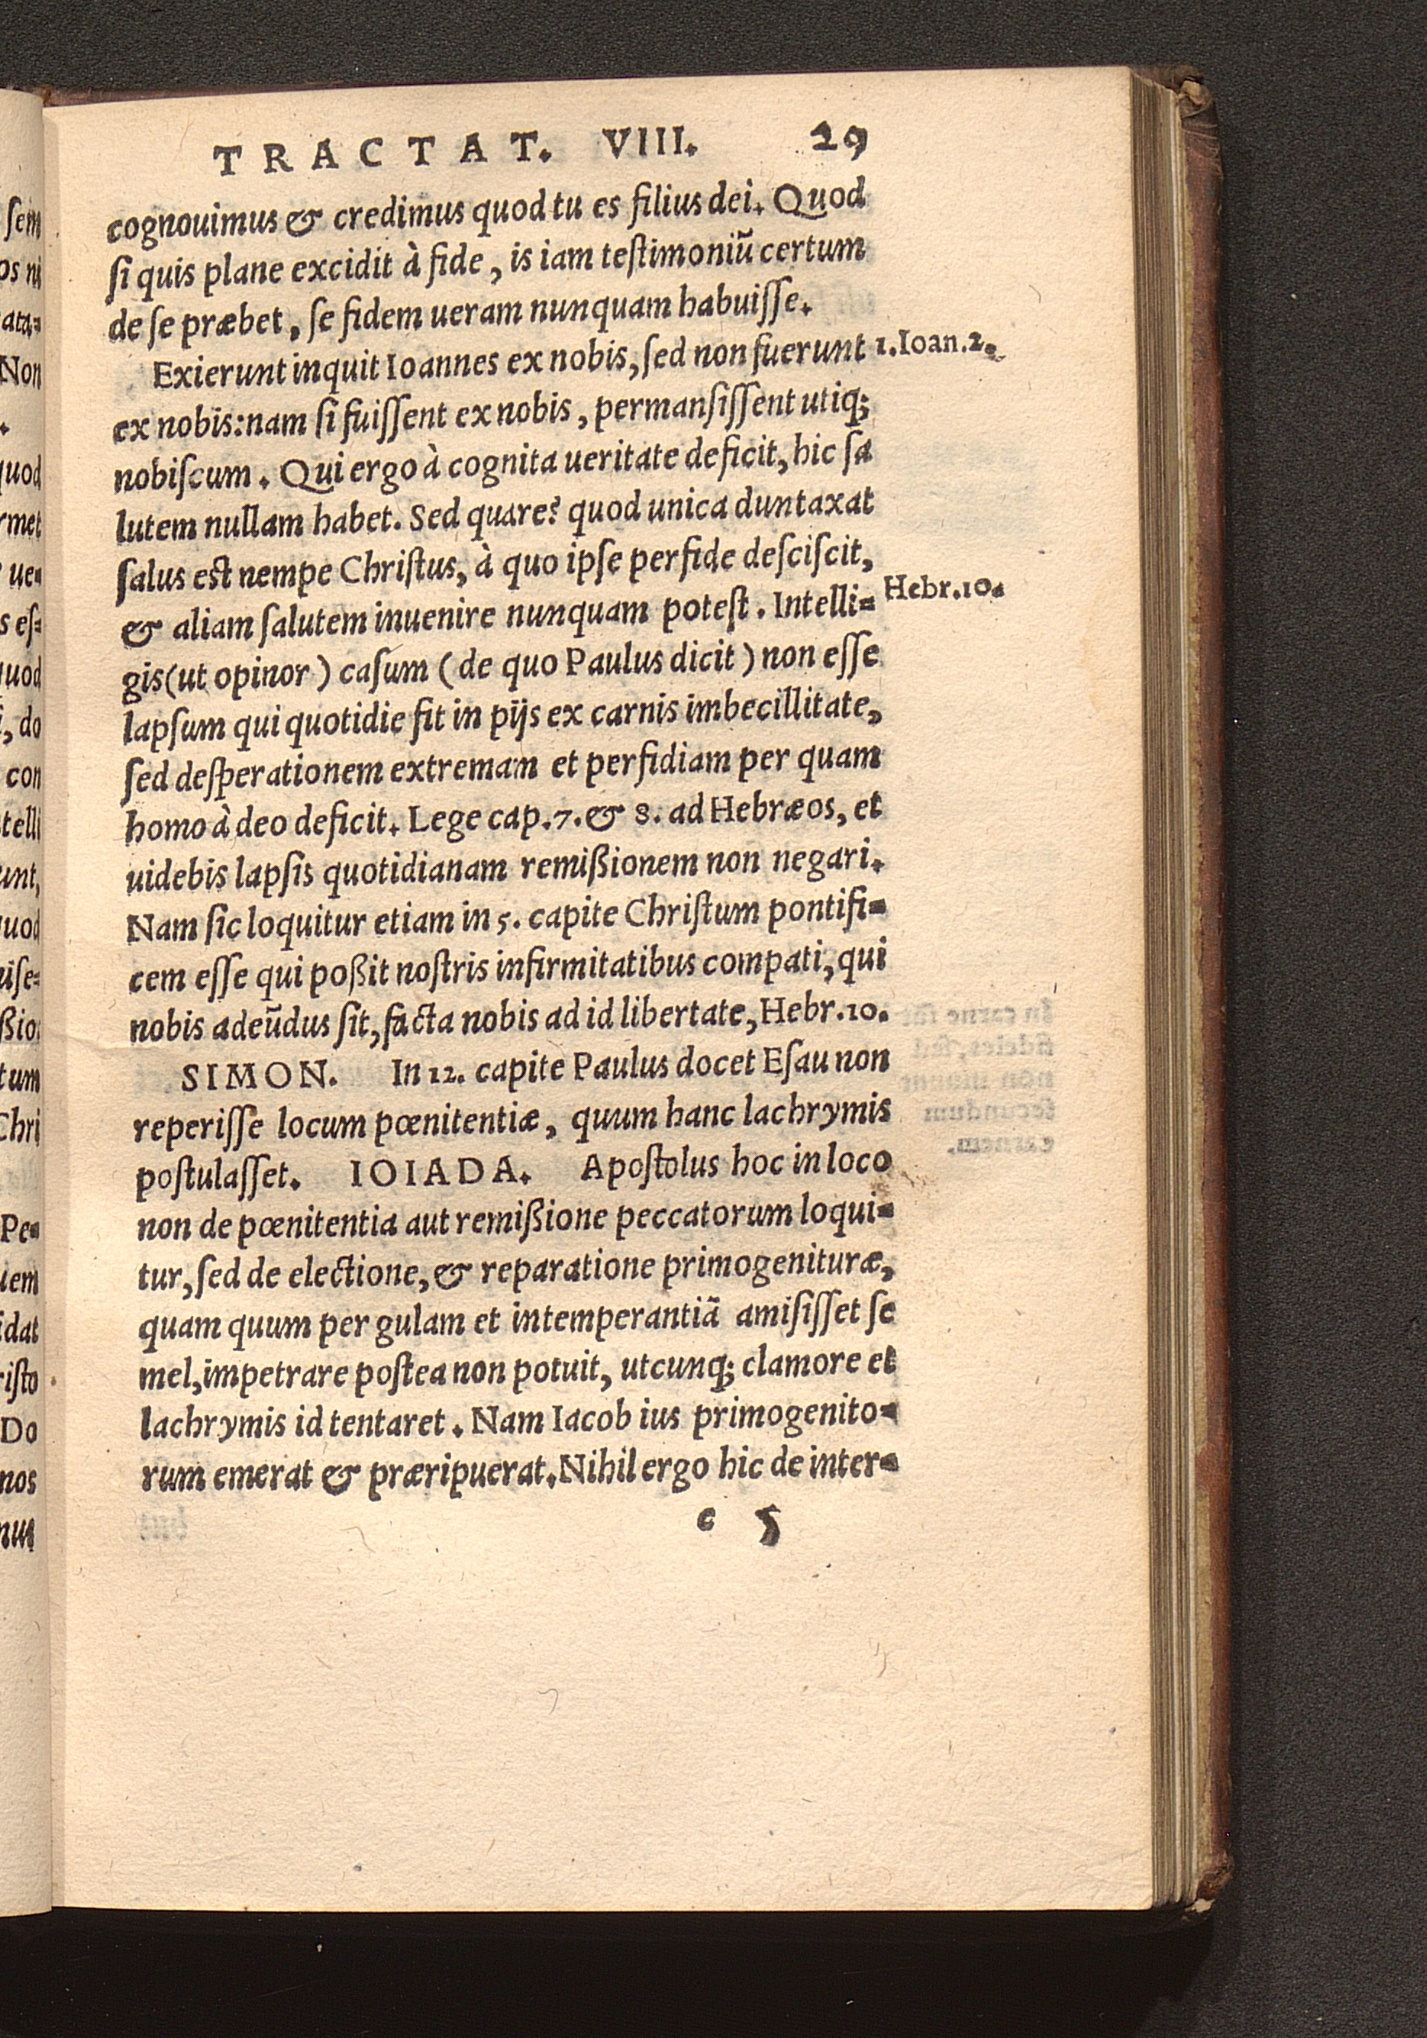 TRACTAT. VIII. 29
cognouimus & credimus quod tu es filius dei. Quod
ſi quis plane excidit à fide, is iam teſtimoniū certum
de ſe præbet, ſe fidem ueram nunquam habuiſſe.
Exierunt inquit Ioannes ex nobis, ſed non fuerunt
1.Ioan.2.
ex nobis: nam ſi fuiſſent ex nobis, permanſiſſent utiq;
nobiſcum. Qui ergo à cognita ueritate deficit, hic ſa
lutem nullam habet. Sed quare? quod unica duntaxat
ſalus est nempe Chriſtus, à quo ipſe perfide deſciſcit,
& aliam ſalutem inuenire nunquam poteſt. Intelli=
Hebr.10.
gis (ut opinor) caſum (de quo Paulus dicit) non eſſe
lapſum qui quotidie fit in pijs ex carnis imbecillitate,
ſed deſperationem extremam et perfidiam per quam
homo à deo deficit. Lege cap.7. & 8. ad Hebræos, et
uidebis lapſis quotidianam remißionem non negari.
Nam ſic loquitur etiam in 5. capite Chriſtum pontifi=
cem eſſe qui poßit noſtris infirmitatibus compati, qui
nobis adeūdus ſit, facta nobis ad id libertate, Hebr.10.
SIMON. In 12. capite Paulus docet Eſau non
reperiſſe locum pœnitentiæ, quum hanc lachrymis
poſtulaſſet. IOIADA. Apoſtolus hoc in loco
non de pœnitentia aut remißione peccatorum loqui=
tur, ſed de electione, & reparatione primogenituræ,
quam quum per gulam et intemperantiā amiſiſſet ſe
mel, impetrare poſtea non potuit, utcunq; clamore et
lachrymis id tentaret. Nam Iacob ius primogenito=
rum emerat & præripuerat. Nihil ergo hic de inter=
c 5
ſem
os ni
Non
.
quod
rmet
ue=
s eſ=
quod
, do
con
telli
unt,
uod
uiſe=
ßio
tum
Chri
Pe=
uem
idat
riſto
Do
nos
nus